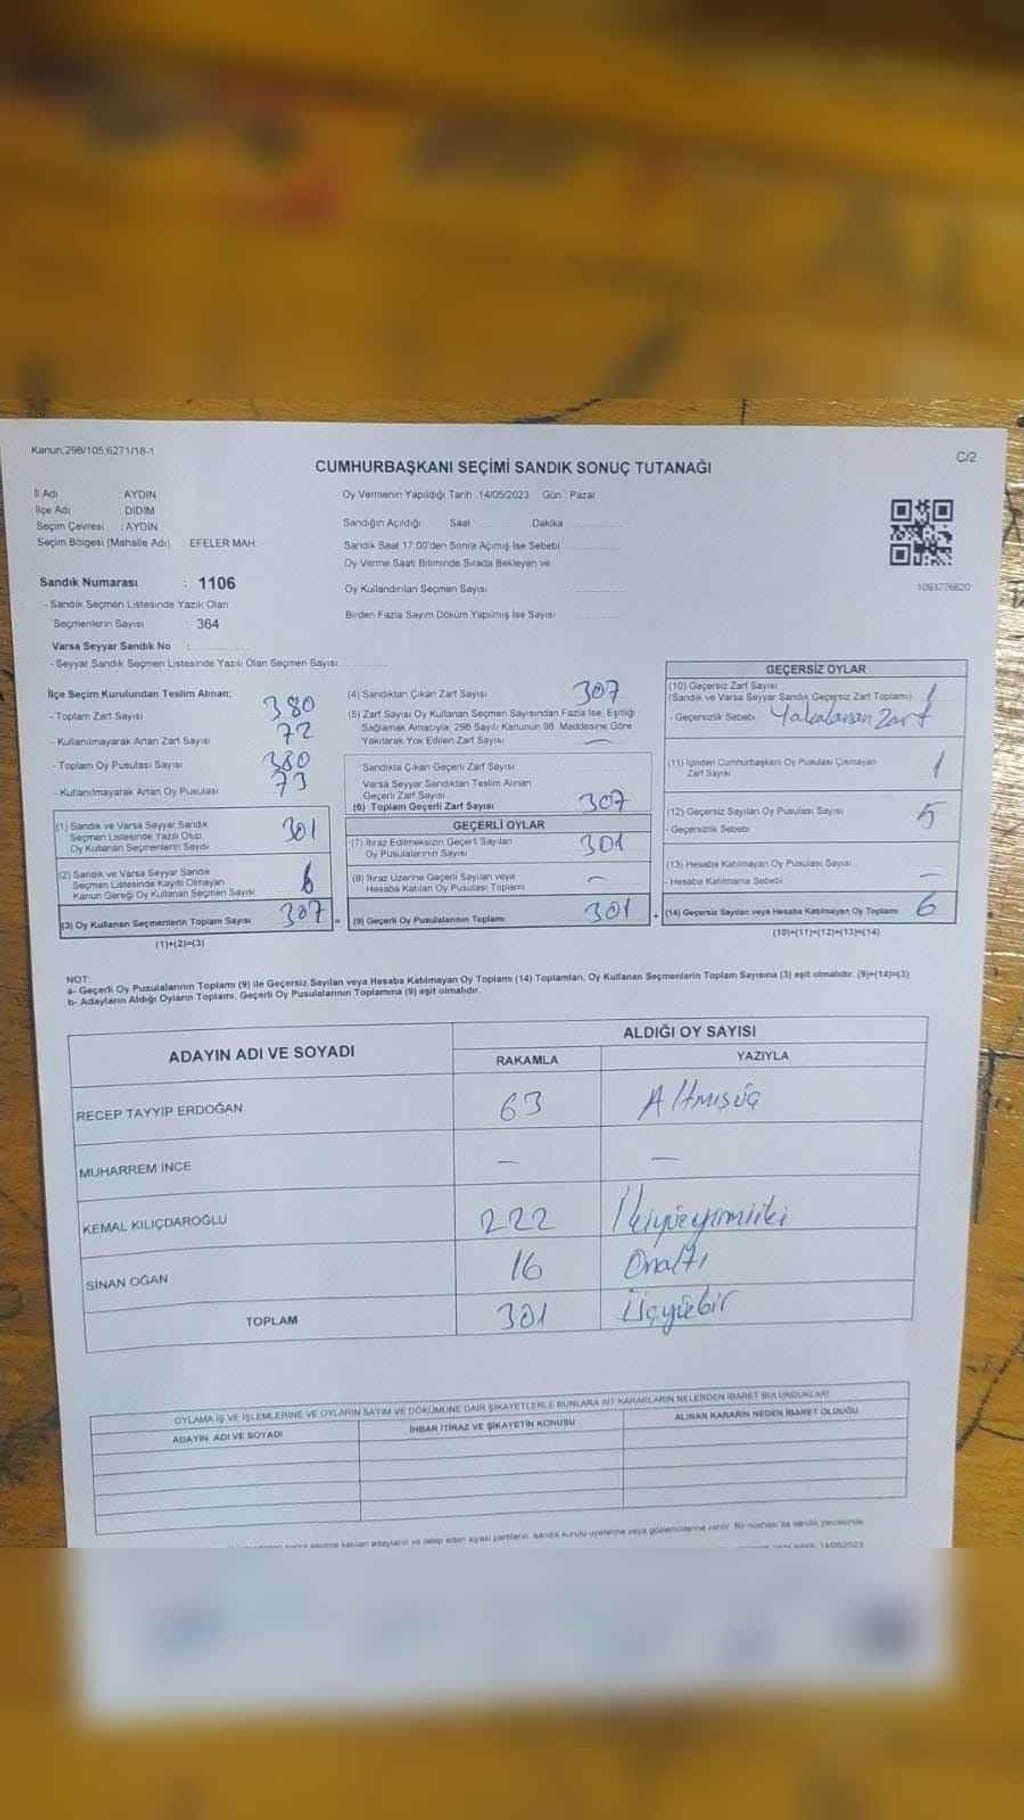 Kanun:298/105;6271/18-1
C/2
CUMHURBAŞKANI SEÇİMİ SANDIK SONUÇ TUTANAĞI
İl Adı : AYDIN
İlçe Adı : DİDİM
Seçim Çevresi : AYDIN
Seçim Bölgesi (Mahalle Adı) : EFELER MAH.
Sandık Numarası : 1106
- Sandık Seçmen Listesinde Yazılı Olan
Seçmenlerin Sayısı : 364
Varsa Seyyar Sandık No :
- Seyyar Sandık Seçmen Listesinde Yazılı Olan Seçmen Sayısı
Oy Vermenin Yapıldığı Tarih :14/05/2023 Gün : Pazar
Sandığın Açıldığı Saat Dakika
Sandık Saat 17:00'den Sonra Açımış İse Sebebi
Oy Verme Saati Bitiminde Sırada Bekleyen ve
Oy Kullandırılan Seçmen Sayısı
Birden Fazla Sayım Döküm Yapılmış İse Sayısı
1093776620
İlçe Seçim Kurulundan Teslim Alınan;
- Toplam Zarf Sayısı 380
- Kullanılmayarak Artan Zarf Sayısı 72
- Toplam Oy Pusulası Sayısı 380
- Kullanılmayarak Artan Oy Pusulası 73
(1) Sandık ve Varsa Seyyar Sandık
Seçmen Listesinde Yazılı Olup
Oy Kullanan Seçmenlerin Sayısı 301
(2) Sandık ve Varsa Seyyar Sandık
Seçmen Listesinde Kayıtlı Olmayan
Kanun Gereği Oy Kullanan Seçmen Sayısı 6
(3) Oy Kullanan Seçmenlerin Toplam Sayısı 307 =
(1)+(2)=(3)
(4) Sandıktan Çıkan Zarf Sayısı 307
(5) Zarf Sayısı Oy Kullanan Seçmen Sayısından Fazla İse, Eşitliği
Sağlamak Amacıyla; 298 Sayılı Kanunun 98. Maddesine Göre
Yakılarak Yok Edilen Zarf Sayısı —
Sandıkta Çıkan Geçerli Zarf Sayısı
Varsa Seyyar Sandıktan Teslim Alınan
Geçerli Zarf Sayısı
(6) Toplam Geçerli Zarf Sayısı 307
GEÇERLİ OYLAR
(7) İtiraz Edilmeksizin Geçerli Sayılan
Oy Pusulalarının Sayısı 301
(8) İtiraz Üzerine Geçerli Sayılan veya
Hesaba Katılan Oy Pusulası Toplamı —
(9) Geçerli Oy Pusulalarının Toplamı 301 +
GEÇERSİZ OYLAR
(10) Geçersiz Zarf Sayısı
(Sandık ve Varsa Seyyar Sandık Geçersiz Zarf Toplamı) 1
- Geçersizlik Sebebi Yakalanan Zarf
(11) İçinden Cumhurbaşkanı Oy Pusulası Çıkmayan
Zarf Sayısı 1
(12) Geçersiz Sayılan Oy Pusulası Sayısı 5
- Geçersizlik Sebebi
(13) Hesaba Katılmayan Oy Pusulası Sayısı —
- Hesaba Katılmama Sebebi
(14) Geçersiz Sayılan veya Hesaba Katılmayan Oy Toplamı 6
(10)+(11)+(12)+(13)=(14)
NOT:
a- Geçerli Oy Pusulalarının Toplamı (9) ile Geçersiz Sayılan veya Hesaba Katılmayan Oy Toplamı (14) Toplamları, Oy Kullanan Seçmenlerin Toplam Sayısına (3) eşit olmalıdır. (9)+(14)=(3)
b- Adayların Aldığı Oyların Toplamı, Geçerli Oy Pusulalarının Toplamına (9) eşit olmalıdır.
ADAYIN ADI VE SOYADI ALDIĞI OY SAYISI
RAKAMLA YAZIYLA
RECEP TAYYİP ERDOĞAN 63 Altmışüç
MUHARREM İNCE — —
KEMAL KILIÇDAROĞLU 222 İkiyüzyirmiiki
SİNAN OĞAN 16 Onaltı
TOPLAM 301 Üçyüzbir
OYLAMA İŞ VE İŞLEMLERİNE VE OYLARIN SAYIM VE DÖKÜMÜNE DAİR ŞİKAYETLERLE BUNLARA AİT KARARLARIN NELERDEN İBARET BULUNDUKLARI
ADAYIN ADI VE SOYADI İHBAR İTİRAZ VE ŞİKAYETİN KONUSU ALINAN KARARIN NEDEN İBARET OLDUĞU